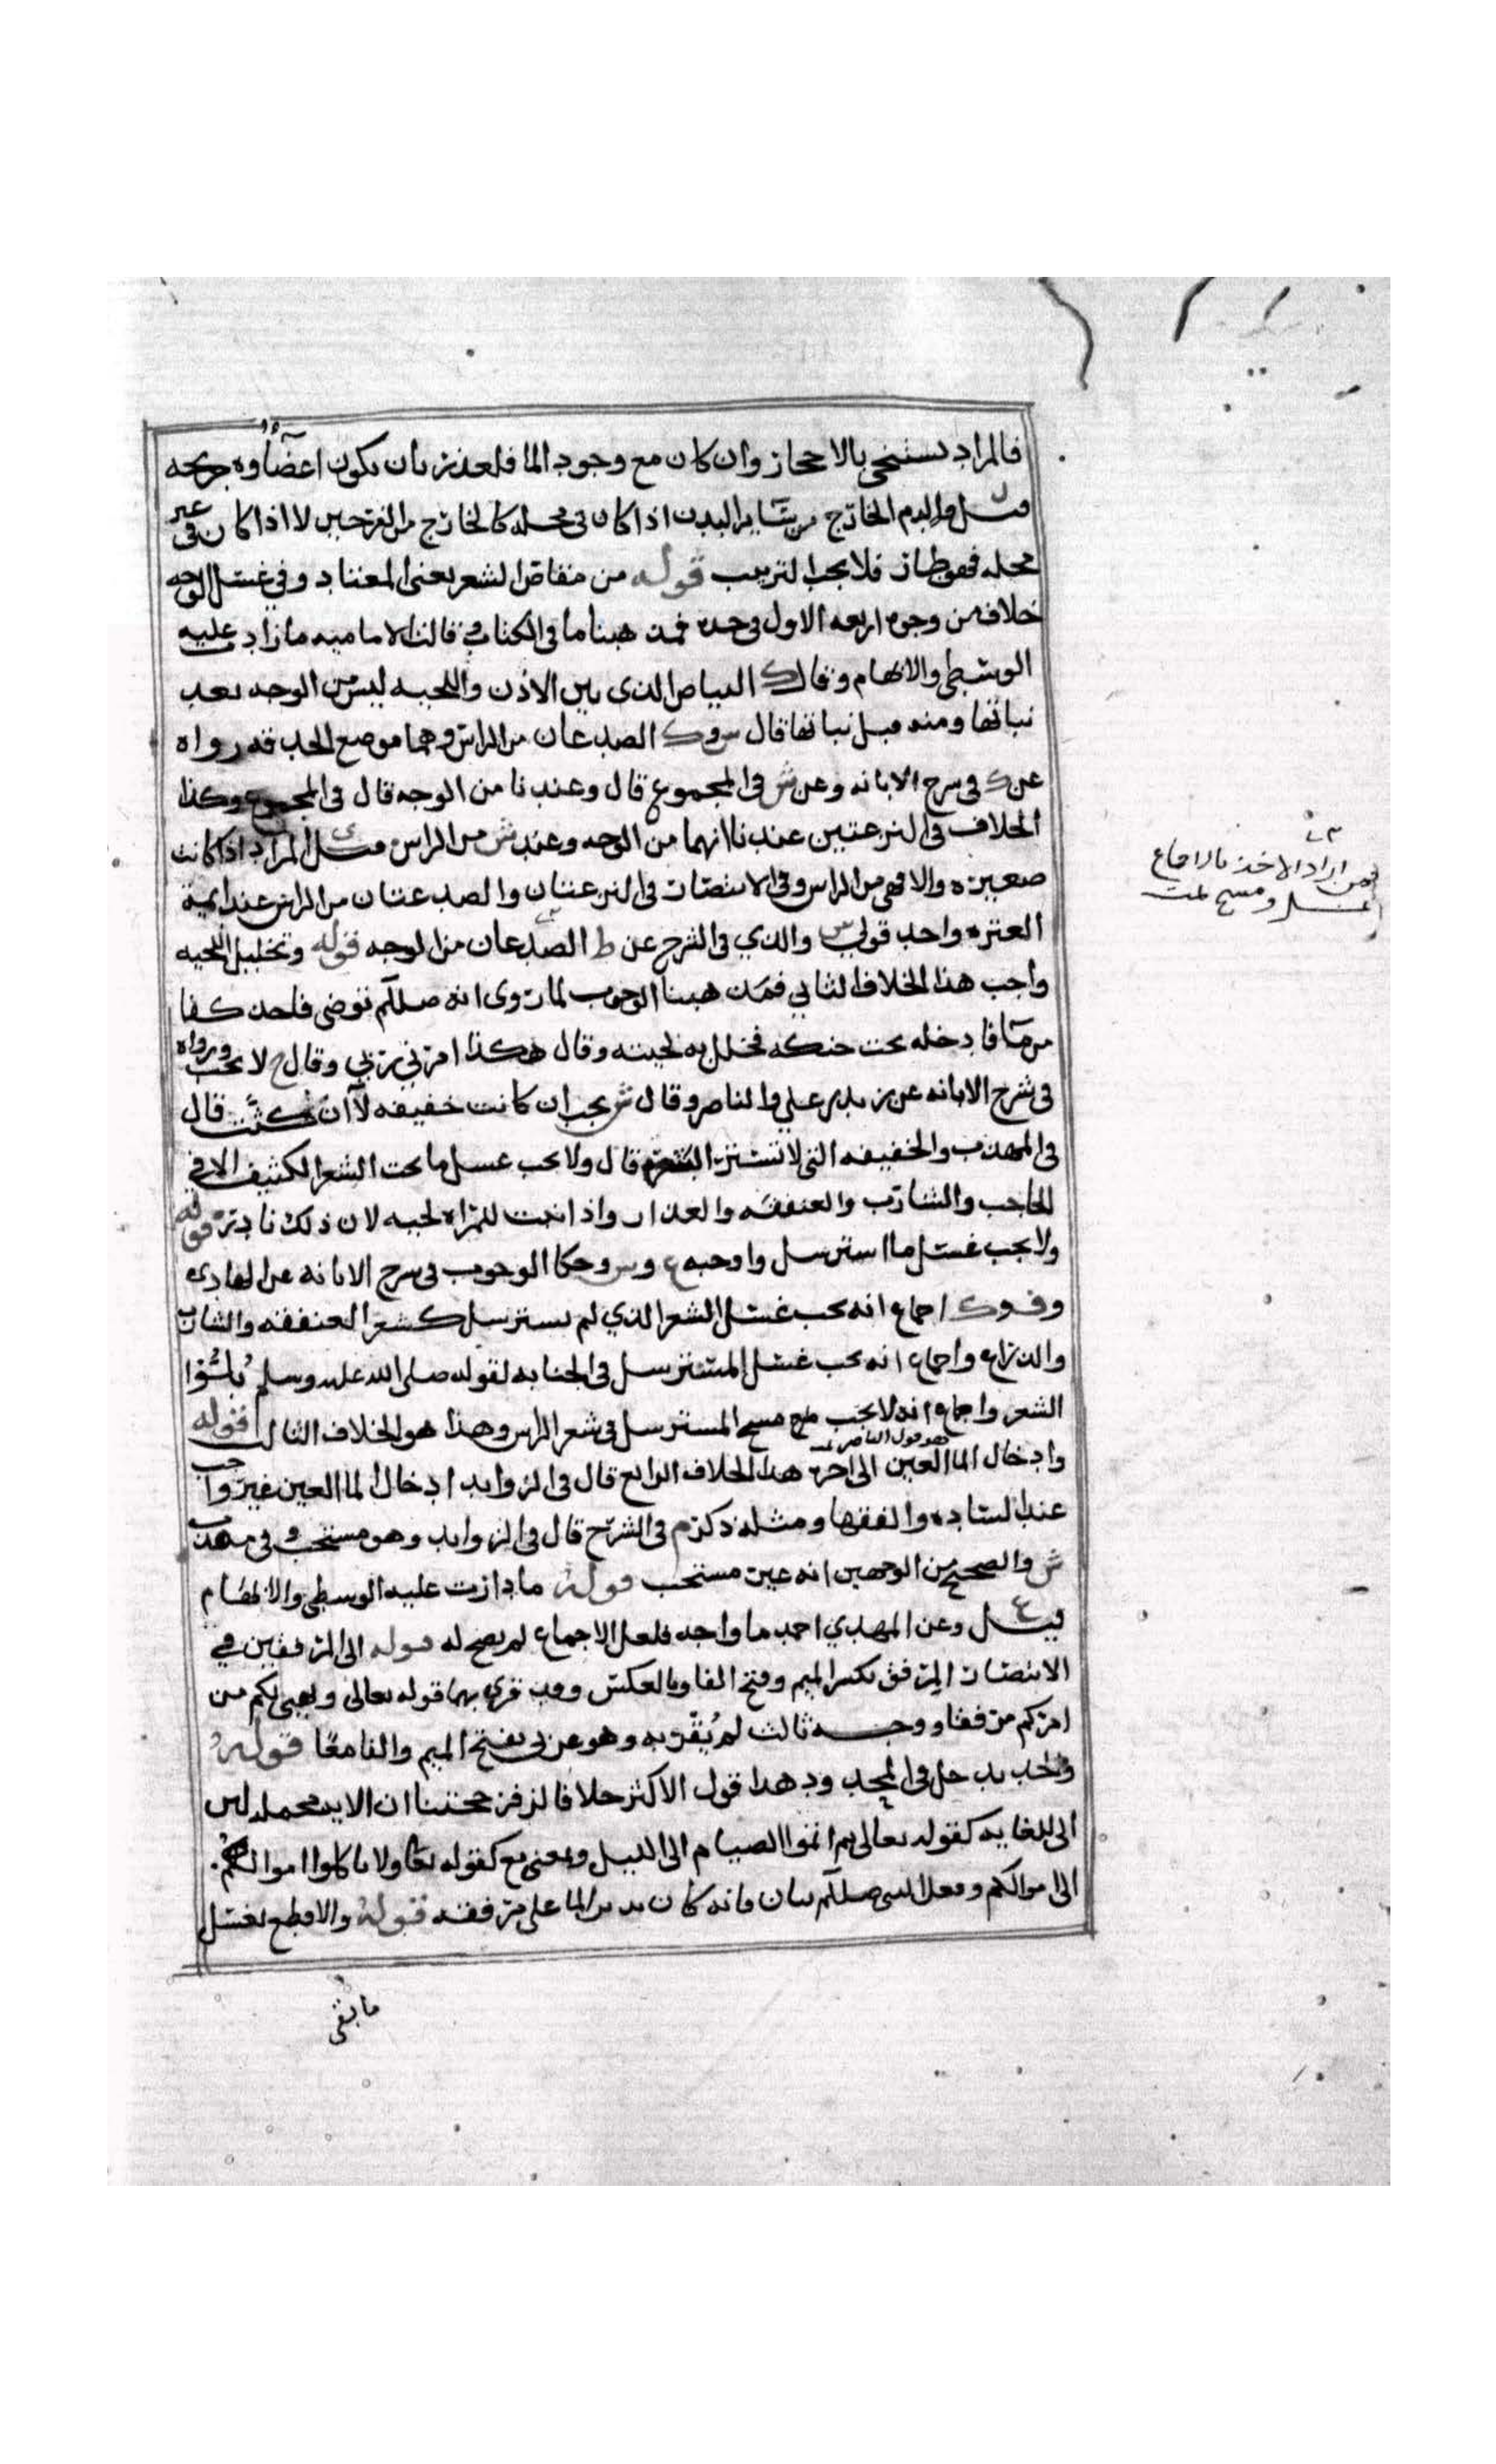 فالمراد يستنجي بالاحجار وان كان مع وجود الما فلعذر بان يكون اعضاوه جريحه
قيل والدم الخارج من سائر البدن اذا كان في محله كالخارج من الفرجين لا اذا كان في غير
محله فهو طار فلا يجب الترتيب قوله من مقاص الشعر يعني المعتاد وفي غسل الوجه
خلاف من وجوه اربعه الاول في حده فمذهبنا ما في الكتاب قالت الاماميه ما زاد عليه
الوسطى والابهام وقال ك البياض الذي بين الاذن واللحيه ليس من الوجه بعد
نباتها ومنه قبل نباتها قال س وك الصدغان من الراس وهما موضع الحد قد رواه
عن ك في شرح الابانه وعن ش في المجموع قال وعندنا من الوجه قال في المجموع وكذا
الخلاف في النزعتين عندنا انهما من الوجه وعند ش من الراس قيل المراد اذا كانت
صغيره والا فهي من الراس وفي الانتصار في النزعتان والصدغتان من الراس عند ايمة
العتره واحد قولي س والذي في الشرح عن ط الصدغان من الوجه قوله وتخليل اللحيه
واجب هذا الخلاف الثاني فمذهبنا الوجوب لما روي انه صللم توضى فاخذ كفا
من ما فادخله تحت حنكه فخلل به لحيته وقال هكذا امرني ربي وقال ح لا يجب ورواه
في شرح الابانه عن زيد بن علي والناصر وقال ش يجب ان كانت خفيفه لا ان كثت قال
في المهذب والخفيفه التي لا تستر البشره قال ولا يجب غسل ما تحت الشعر الكثيف الا في
الحاجب والشارب والعنفقه والعذار واذا نبت للمراه لحيه لان ذلك نادر قوله
ولا يجب غسل ما استرسل واوجبه ع وس وحكا الوجوب في شرح الابانه عن الهادي
وف وك اجماع انه يجب غسل الشعر الذي لم يسترسل كشعر العنفقه والشارب
والذراع واجماع انه يجب غسل المسترسل في الجنابه لقوله صلى الله عليه وسلم بلوا
الشعر واجماع انه لا يجب مسح المسترسل في شعر الراس وهذا هو الخلاف الثالث قوله
وادخال الما العين الى اخره هو قول الناصر هذا الخلاف الرابع قال في الزوايد ادخال الما العين غير واجب
عند الساده والفقها ومثله ذكره م في الشرح قال في الزوايد وهو مستحب وفي مهذب
ش والصحيح من الوجهين انه غير مستحب قوله ما دارت عليه الوسطى والابهام
قيل ع وعن المهدي احمد ما واجه فلعل الاجماع لم يصح له قوله الى المرفقين في
الانتصار المرفق بكسر الميم وفتح الفا وبالعكس وقد قري بهما قوله تعالى ويهيي لكم من
امركم مرفقا ووجه ثالث لم يقر به وهو عربي بفتح الميم والفا معا قوله
واحد يدخل في الحد وهذا قول الاكثر خلافا لزفر حجتنا ان الايه محمله لان
الى للغايه كقوله تعالى ثم اتموا الصيام الى الليل وبمعنى مع كقوله تعا ولا تاكلوا اموالهم
الى اموالكم وفعل النبي صللم بيان فانه كان يدير الما على مرفقه قوله والاقطع يغسل
ما بقي
فمن اراد الاخذ بالاجماع
غسل ومسح